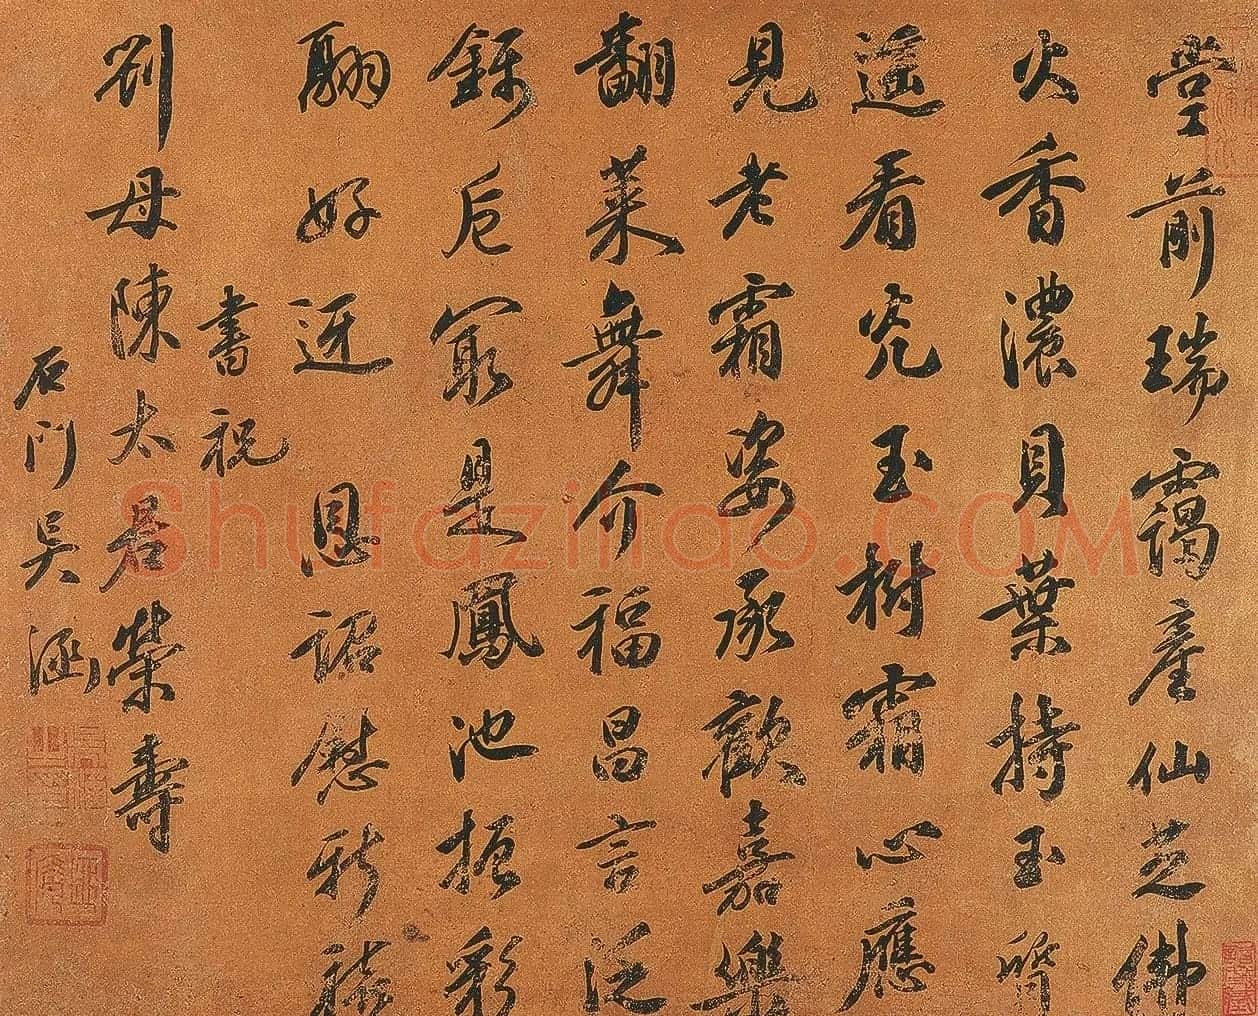 堂前瑞靄產仙芝佛
火香濃貝葉持玉
遙看究玉樹霜心應
見老霜姿承歡嘉樂
翻萊舞介福昌言泛
卮最是鳳池振彩
翮好迓恩詔慰新禧
書祝
劉母陳太君榮壽
石門吳涵
Shufaziliao.COM